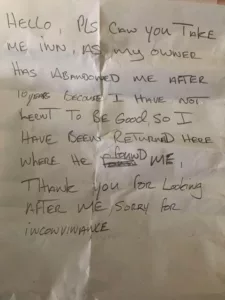 HELLO, PLS CAN YOU TAKE
ME INN, AS MY OWNER
HAS ABANDONED ME AFTER
10 years BECAUSE I HAVE NOT
LERNT TO BE GOOD SO I
HAVE BEEN RETURNED HERE
WHERE HE FOUND ME,
THANK YOU FOR LOOKING
AFTER ME, SORRY FOR
INCONVINANCE